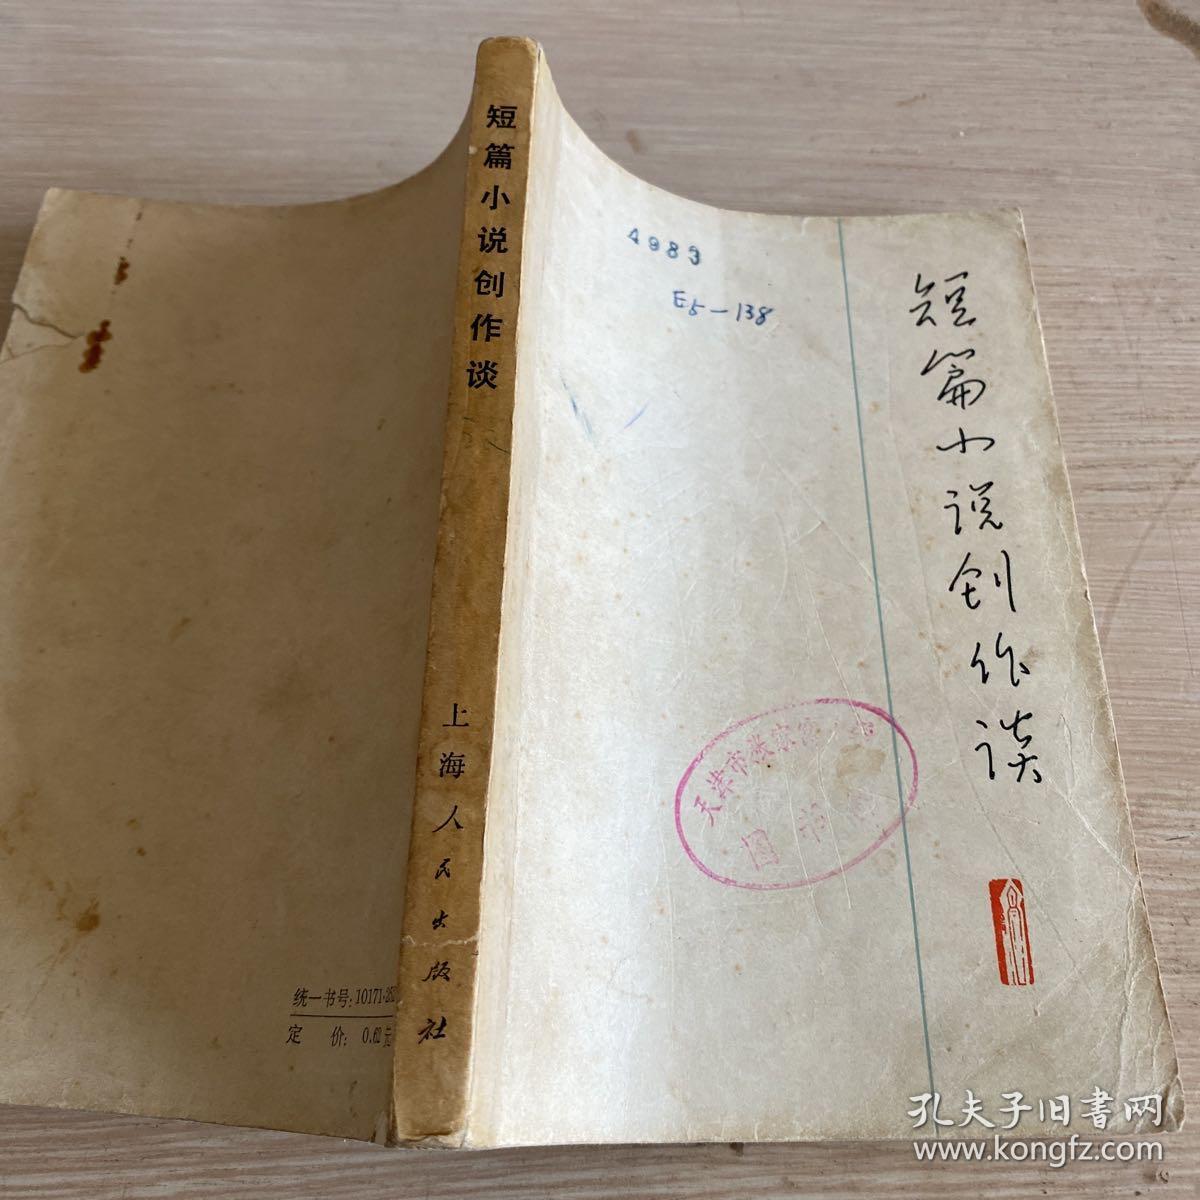 短篇小说创作谈
上海人民出版社
4983
E5-138
短篇小说创作谈
天津市
图书馆
统一书号:10171·
定 价: 0.62元
孔夫子旧書网
www.kongfz.com